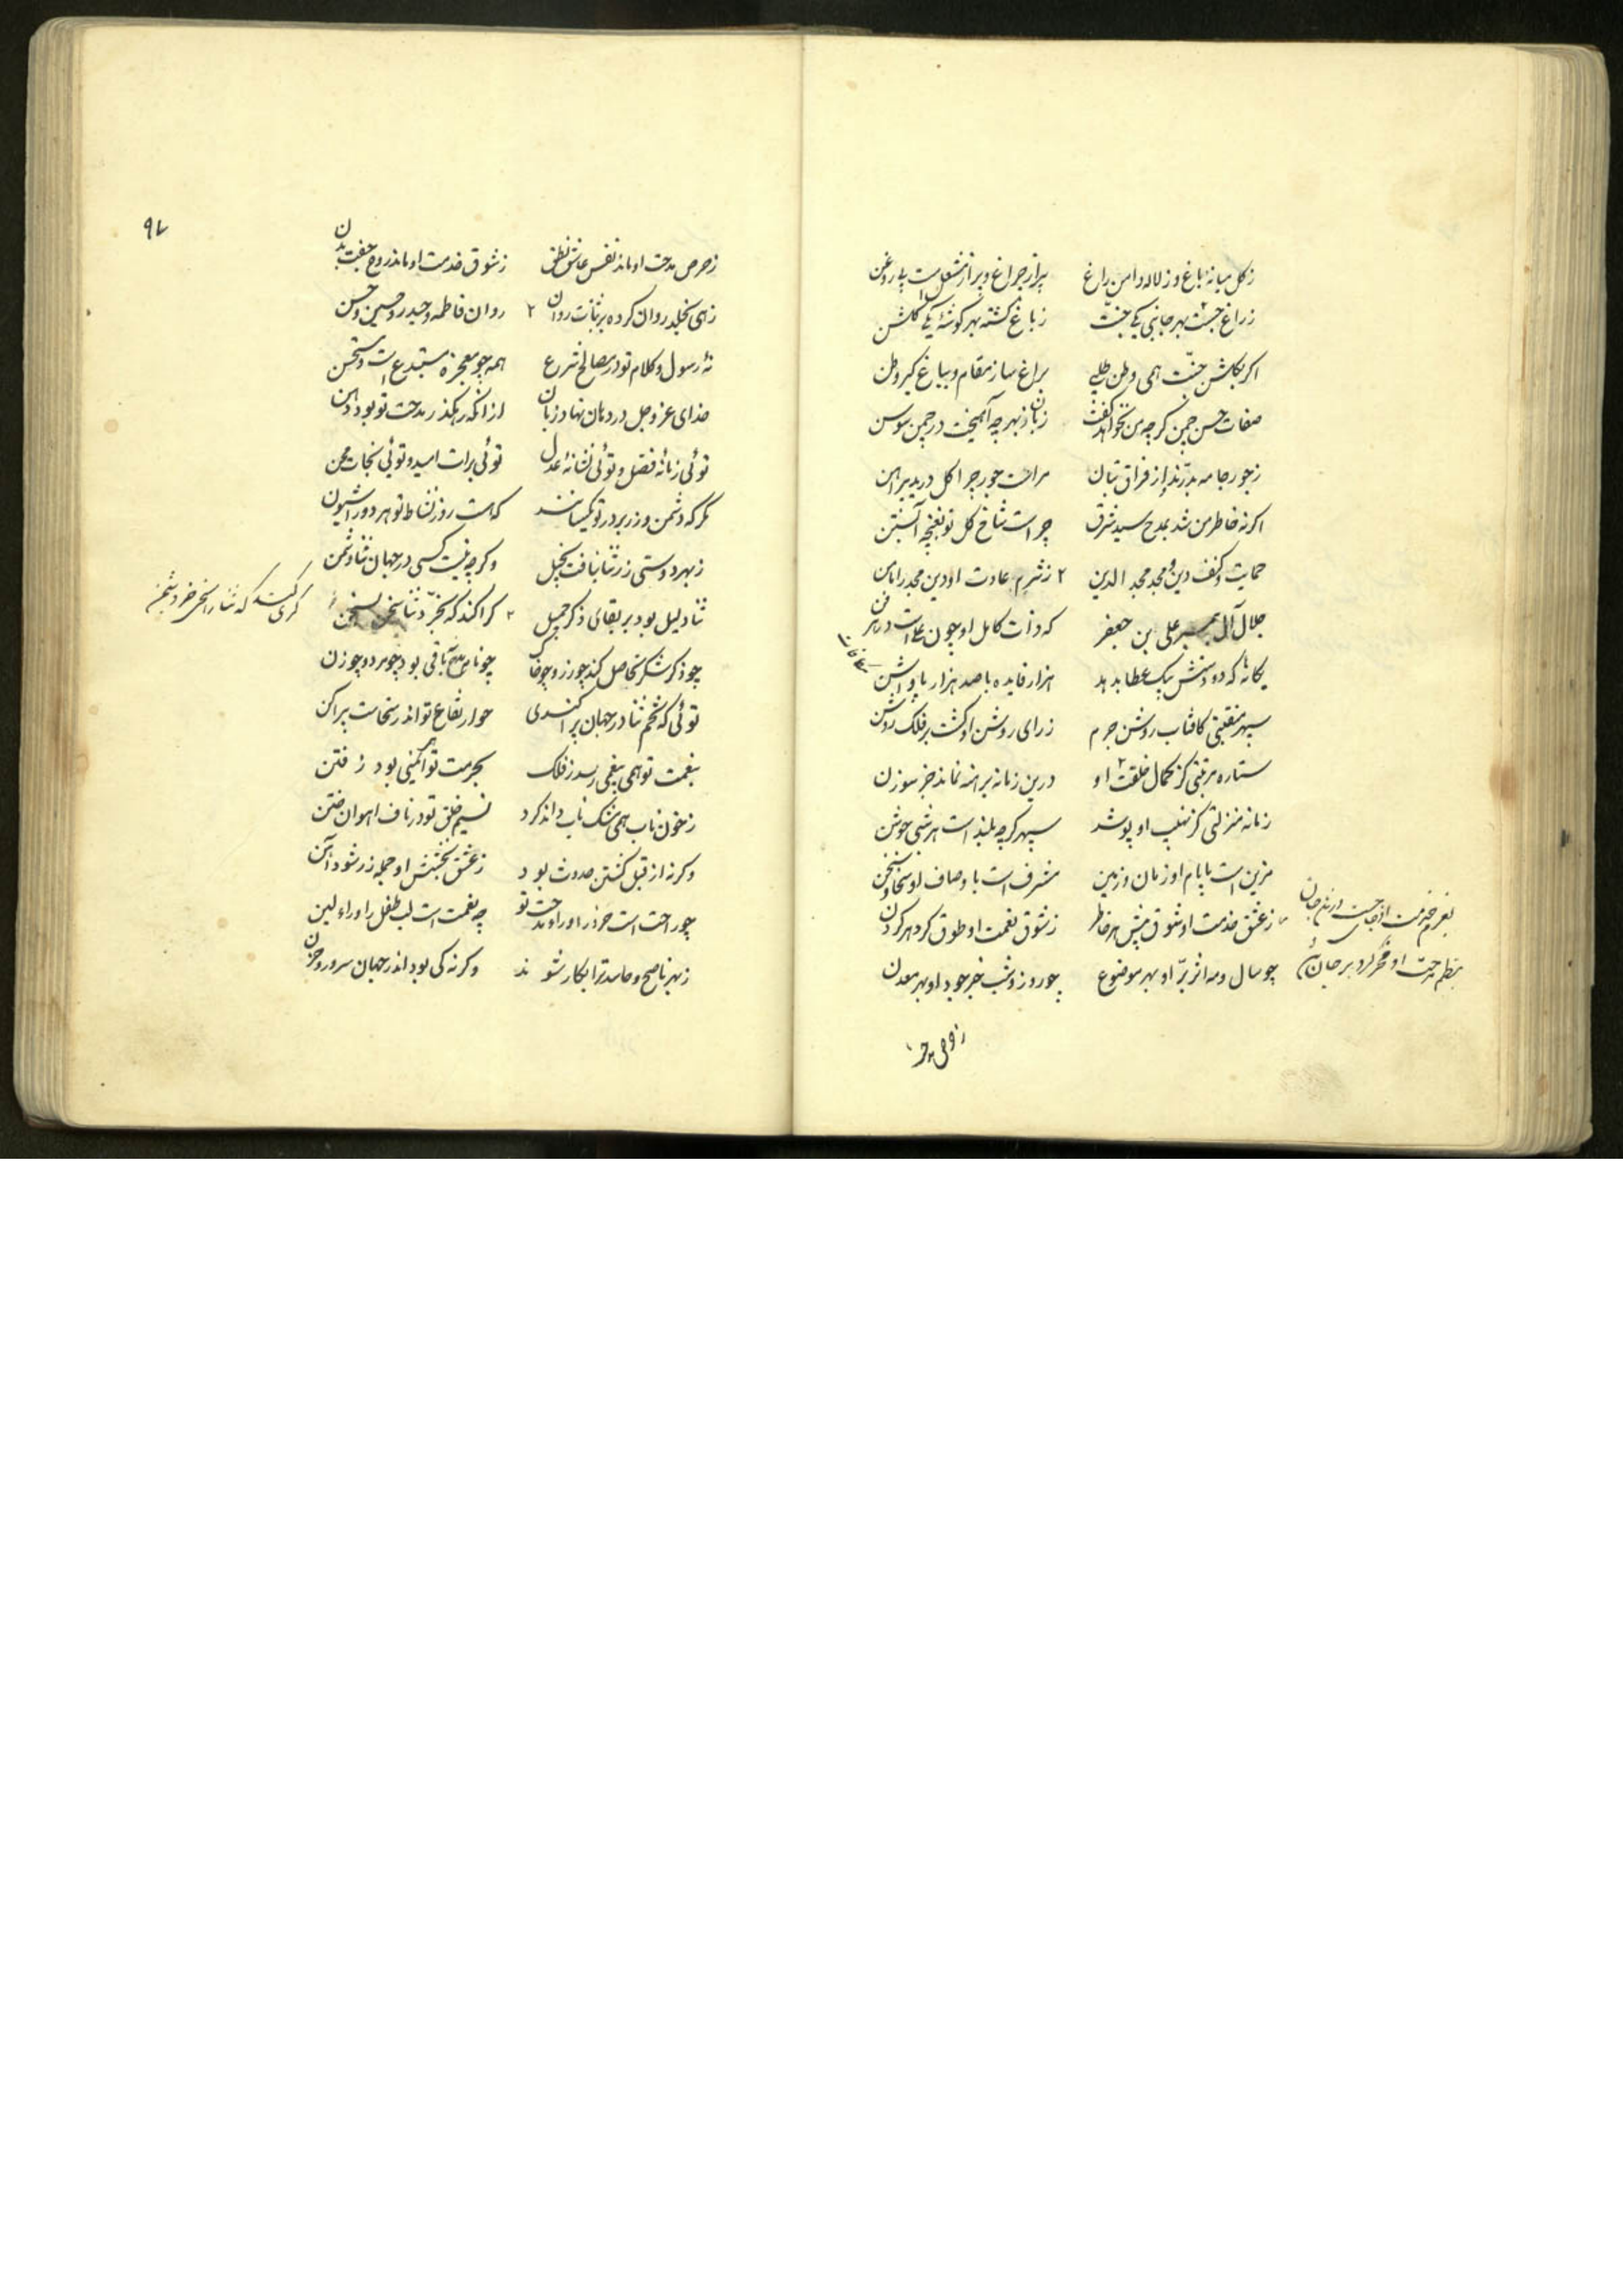 ز کل میانهٔ باغ و ز لاله دامن راغ پر از چراغ و پر از مشعل است بی روغن
ز راغ جست بهر جانبی یکی جنت ز باغ کشته بهر کوشهٔ یکی کلشن
اکر بکلشن جنت همی وطن طلبی براغ ساز مقام و بباغ کیر وطن
صفات حسن چمن کرچه من نخواهم گفت زبان ز بهر چه آمیخت در چمن سوسن
ز جور جامه بدرند از فراق بتان مراست جور چرا کل درید پیراهن
اکرنه خاطر من شد بمدح سید شرق چراست شاخ کل نو بغنچه آبستن
حمایت و کنف دین و مجد مجد الدین ز شرم عادت او دین مجد را مامن
جلال آل پیمبر علی بن جعفر که ذات کامل او چون علی است در هر فن
یکانهٔ که دو دستش بیک عطا بدهد هزار فایده با صد هزار پاداشن
سپهر منقبتی کافتاب روشن جرم ز رای روشن او کشت بر فلک روشن
ستاره مرتبتی کز کمال خلقت او درین زمانه برهنه نماند جز سوزن
زمانه منزلتی کز نهیب او پوشد سپهر کرچه بلند است هر شبی جوشن
مزین است بایام او زمان و زمین مشرف است باوصاف او سخا و سخن
ز عشق خدمت او شوق بیش هر خاطر ز شوق نعمت او طوق کرد هر کردن
چو سال و مه اثر بر او بهر موضوع چو روز و شب خبر جود او بهر معدن
بعزم خدمت او
بنظم مدحت او فخر کرد بر جان
ز حرص
۹۷
ز حرص مدحت او ماند نفس عاشق نطق ز شوق خدمت او ماند روح جفت بدن
زهی بخلد روان کرده بر ثنات روان روان فاطمه و حیدر و حسین و حسن
نهٔ رسول و کلام تو در مصالح شرع همه چو معجزه مستبدع است و مستحسن
خدای عز و جل در دهان نهاد زبان از انکه رهکذر مدحت تو بود دهن
توئی زمانهٔ فضل و توئی نشانهٔ عدل توئی برات امید و توئی نجات محن
مکر که دشمن و زر بر در تو یکسانند که هست روز نشاط تو هر دو را شیون
ز بهر دوستی زر ثنا نیافت بخیل وکرچه نیست کسی در جهان ثنا دشمن
ثنا دلیل بود بر بقای ذکر جمیل کرا کند که بخرد ثنا سخن بسخن
کری کند که ثنا را سخی خرد بثمن
چو ذکر شکر نحاصل کند چو زر و چو خاک چو نام باقی بود چو مرد و چو زن
توئی که تخم ثنا در جهان پراکندی
بنعمت تو همی بی‌غمی رسد ز فلک بحرمت تو همی ایمنی بود ز فتن
ز خون ناب همی مشک ناب داند کرد نسیم خلق تو در ناف اهوان ختن
وکرنه از قبل کشتن حدوث بود ز عشق بخشش او جمله زر شود آهن
چو راحت است خرد را و را مدحت تو چه نعمت است لب طفل را ورای لبن
ز بهر ناصح و حاسد ترا بکار شوند وکرنه کی بود اندر جهان سرور و حزن